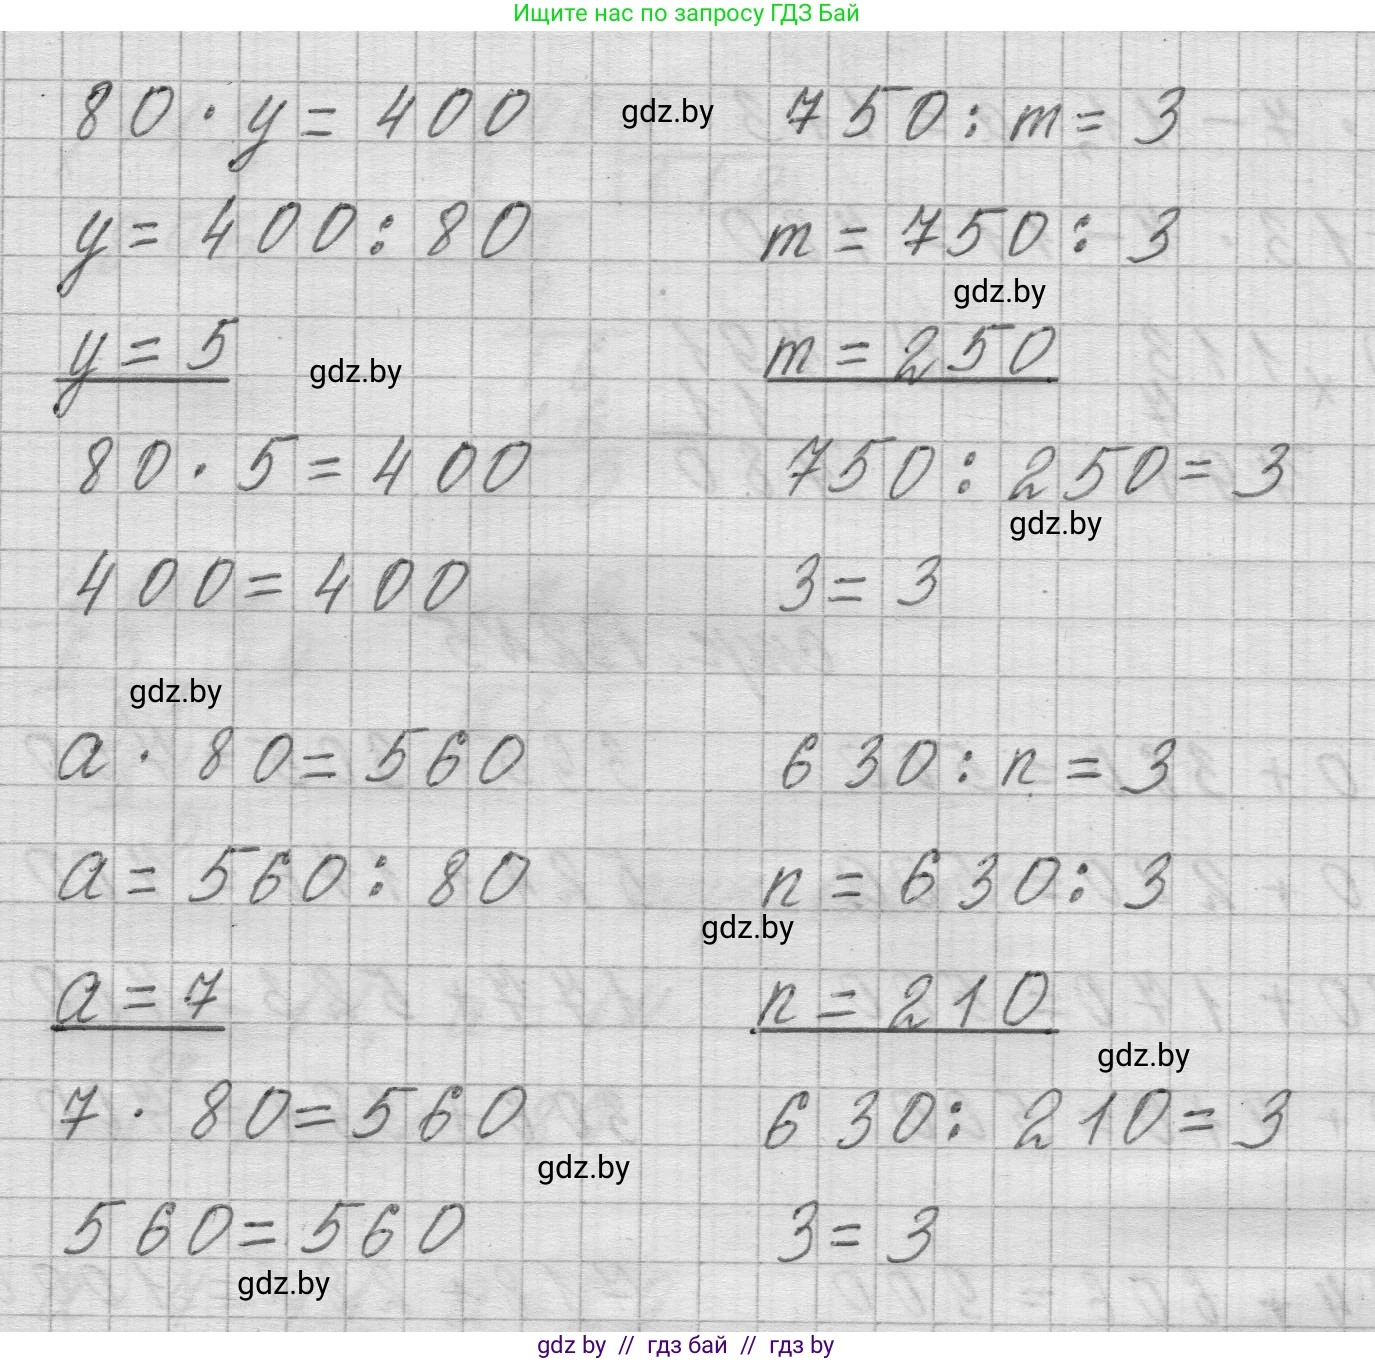 Ищите нас по запросу ГДЗ Бай
80 · y = 400
gdz.by
750 : m = 3
y = 400 : 80
m = 750 : 3
gdz.by
y = 5
gdz.by
m = 250
80 · 5 = 400
750 : 250 = 3
gdz.by
400 = 400
3 = 3
gdz.by
a · 80 = 560
630 : n = 3
a = 560 : 80
n = 630 : 3
gdz.by
a = 7
n = 210
gdz.by
7 · 80 = 560
630 : 210 = 3
gdz.by
560 = 560
3 = 3
gdz.by
gdz by // гдз бай // гдз by